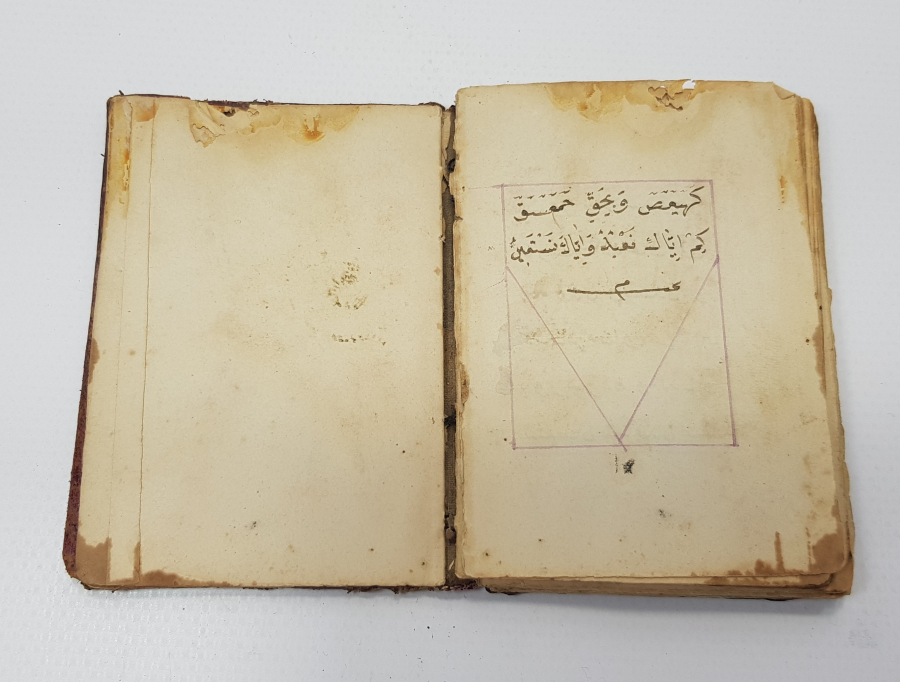 كهيعص وَبِحَقِّ حمعسق
إِيَّاكَ نَعْبُدُ وَإِيَّاكَ نَسْتَعِينُ